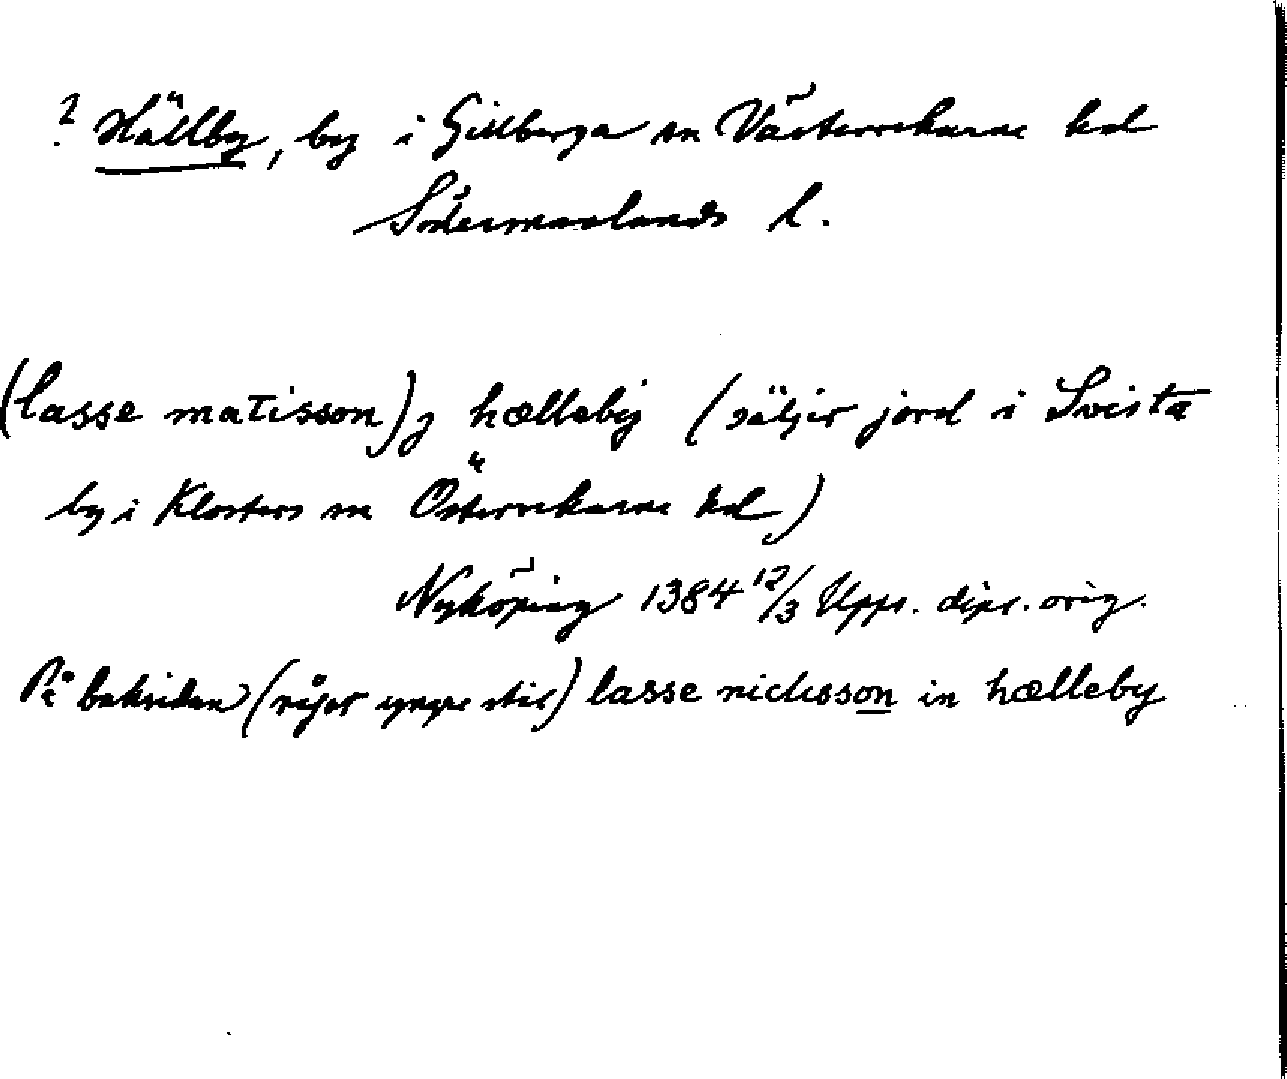 ? Hällby, by i Gillberga sn Västerrekarne hd
Södermanlands l.
(lasse matisson) j hælleby (säljer jord i Svista
by i Klosters sn Österrekarne hd)
Nyköping 1384 12/3 Upps. dipl. orig.
På baksidan (något yngre stil) lasse niclisson in hælleby